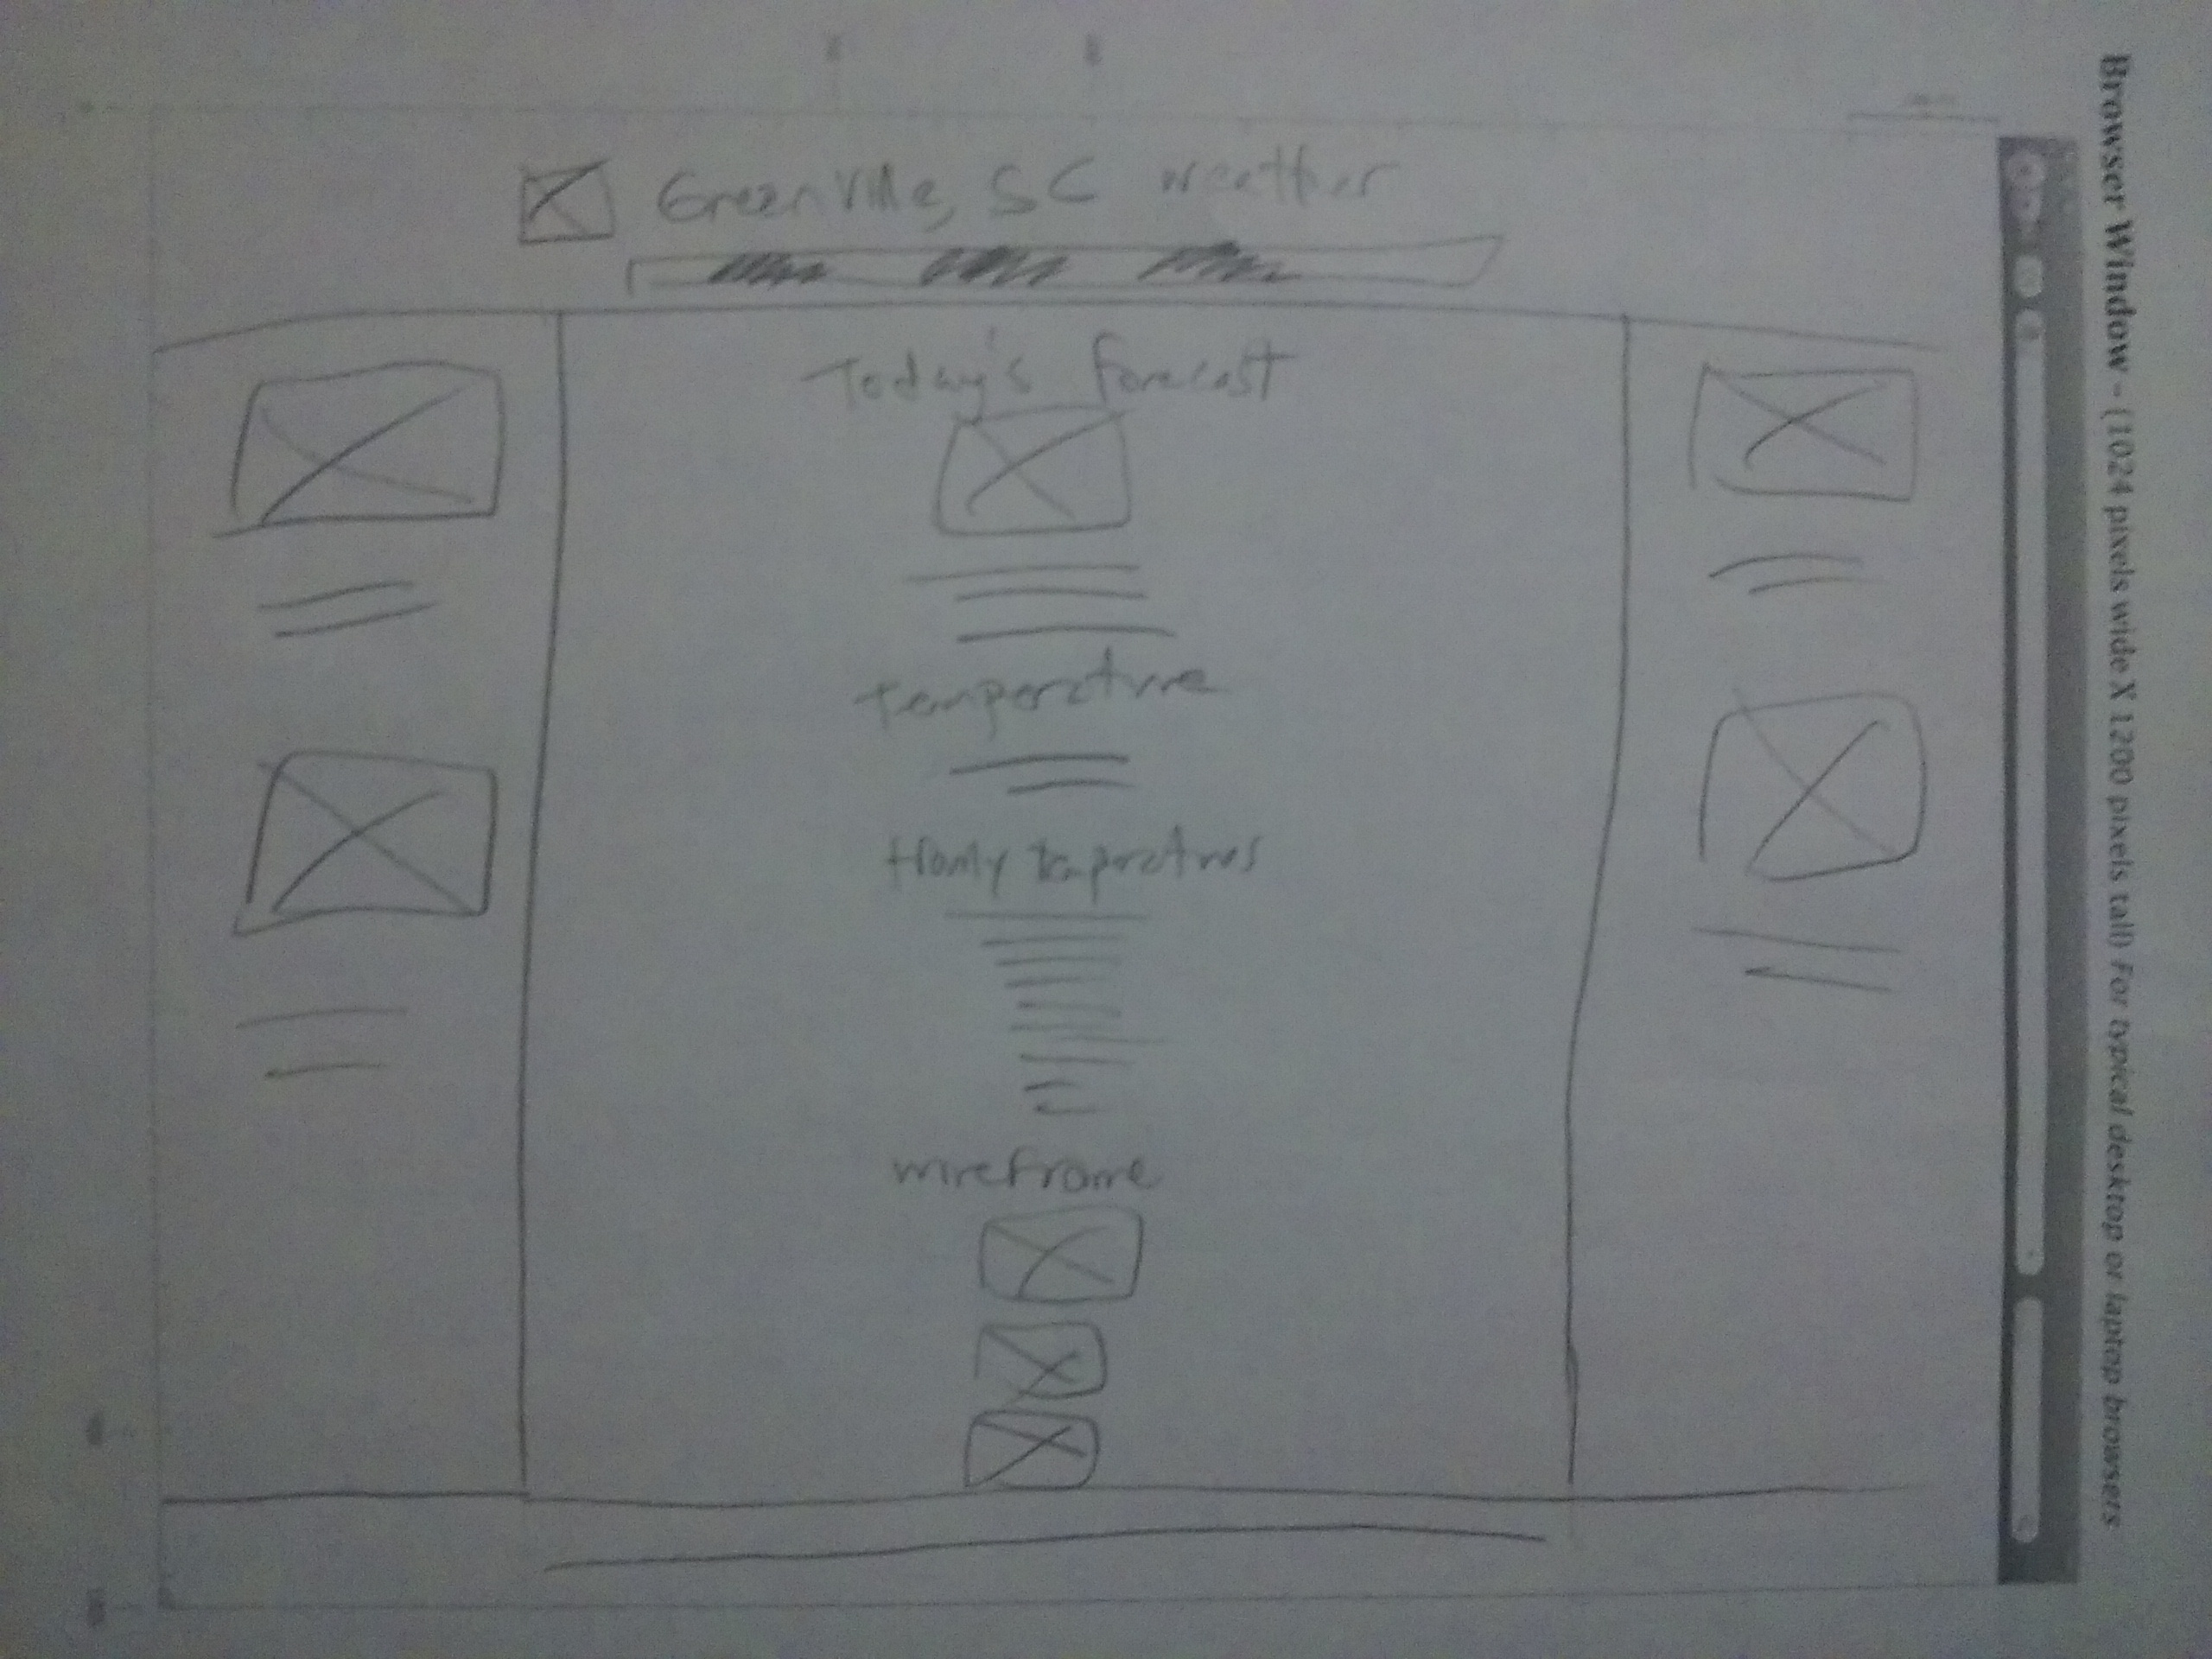 Browser Window – (1024 pixels wide X 1200 pixels tall) For typical desktop or laptop browsers
Greenville, SC weather
Today's forecast
Temperature
Hourly temperatures
wireframe